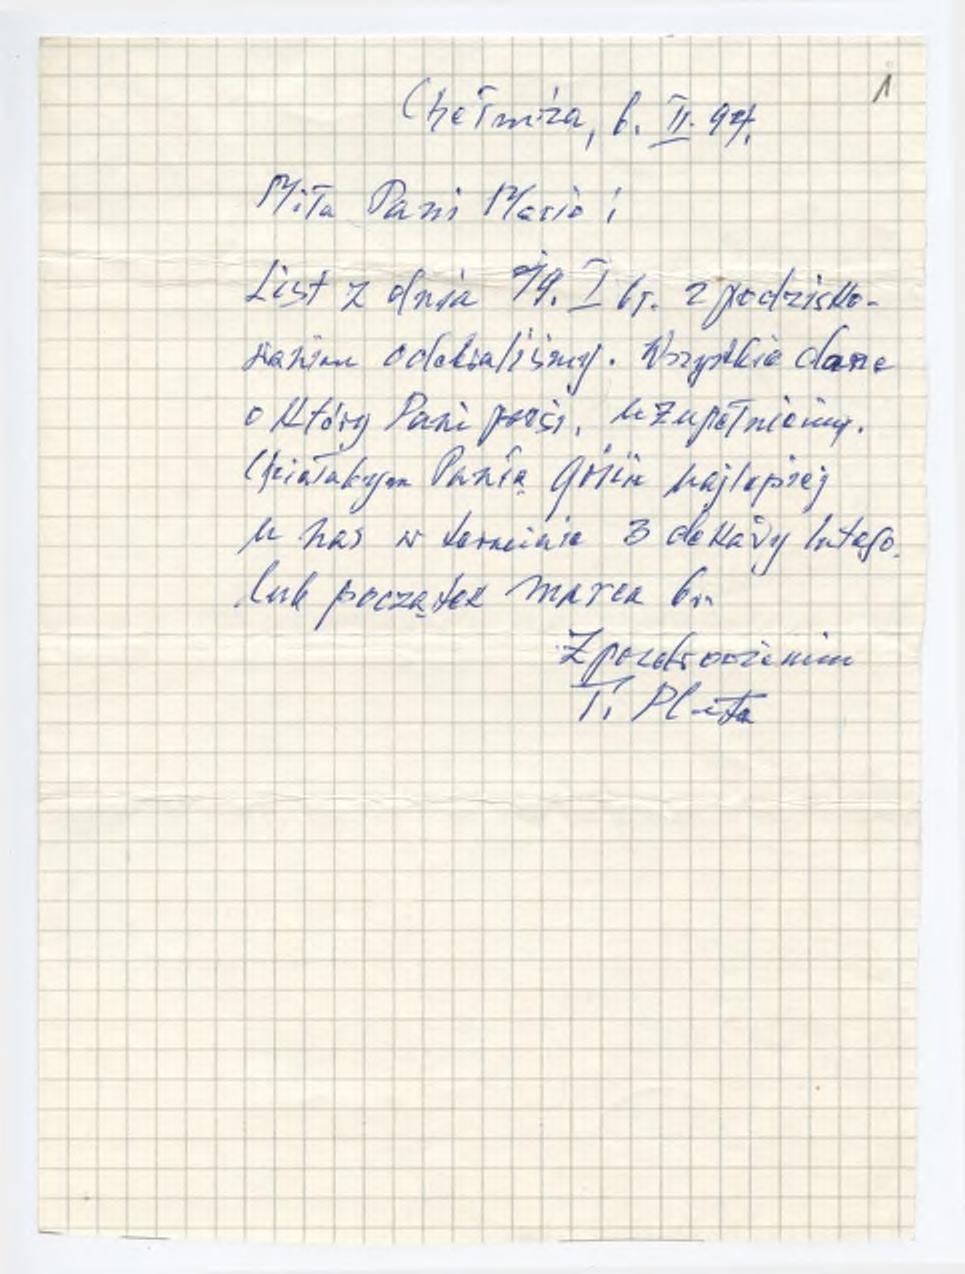 1
Chełmża, 6. II. 94.
Miła Pani Mario!
List z dnia 19. I br. z podzięko-
waniem odebraliśmy. Wszystkie dane
o który Pani prosi, uzupełnimy.
Chciałabym Panią gościć najlepiej
u nas w terminie 3 dekady lutego.
lub początek marca br.
Z pozdrowieniem
T. Pl